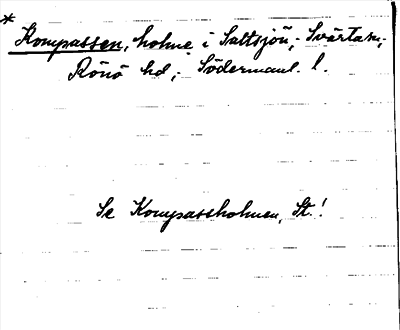 * Kompassen, holme i Saltsjön, Svärta sn,
Rönö hd, Södermanl. l.
Se Kompassholmen, St.!